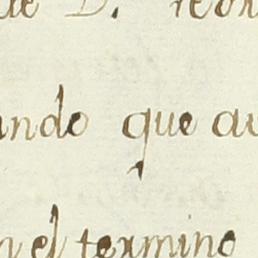 de D.
ando que au
n el termino